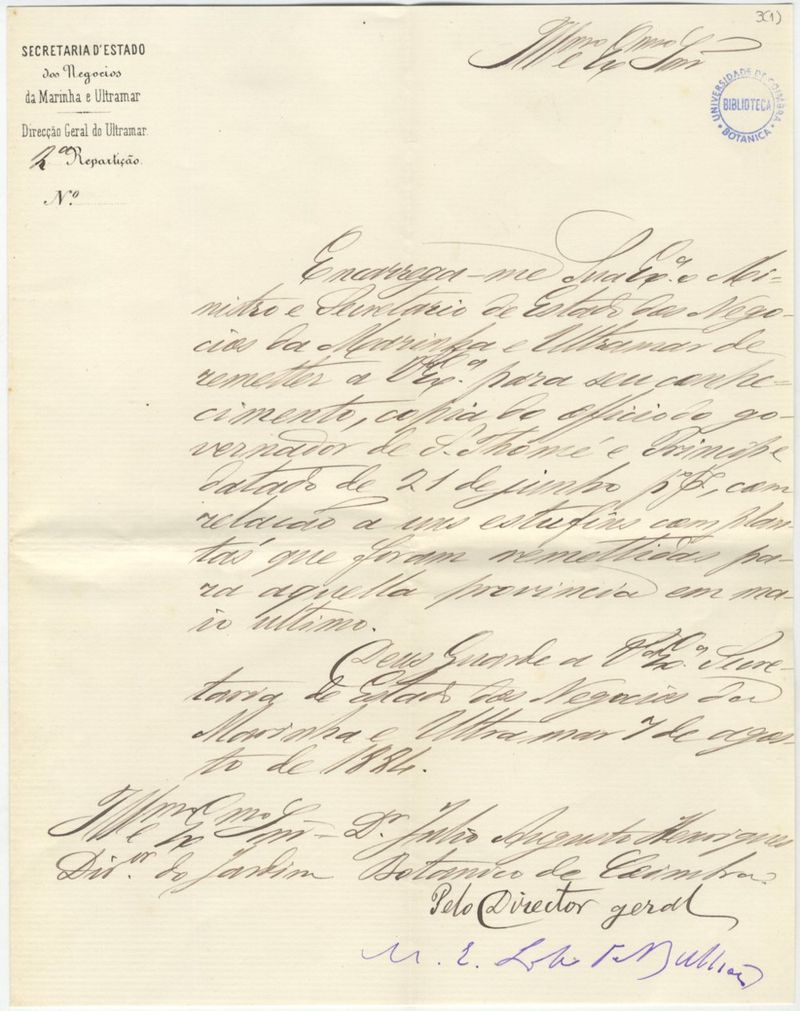 3(1)
SECRETARIA D'ESTADO
dos Negocios
da Marinha e Ultramar
Direcção Geral do Ultramar
2ª Repartição.
N.º
Illmo e Exmo Snr
UNIVERSIDADE DE COIMBRA
BIBLIOTECA
BOTANICA
Encarrega-me Sua Ex.ª o Mi-
nistro e Secretario de Estado dos Nego-
cios da Marinha e Ultramar de
remetter a V Ex.ª para seu conhe-
cimento, copia do officio do go-
vernador de S. Thomé e Principe
datado de 21 de junho p.p., com
relação a uns estufins com plan-
tas que foram remettidas pa-
ra aquella provincia em ma-
io ultimo.
Deus Guarde a V Ex.ª Secre-
taria de Estado dos Negocios da
Marinha e Ultramar 7 de agos-
to de 1884.
Illmo e Exmo Snr Dr. Julio Augusto Henriques
Dir.or do Jardim Botanico de Coimbra.
Pelo Director geral
M. E. Lobo de Bulhões